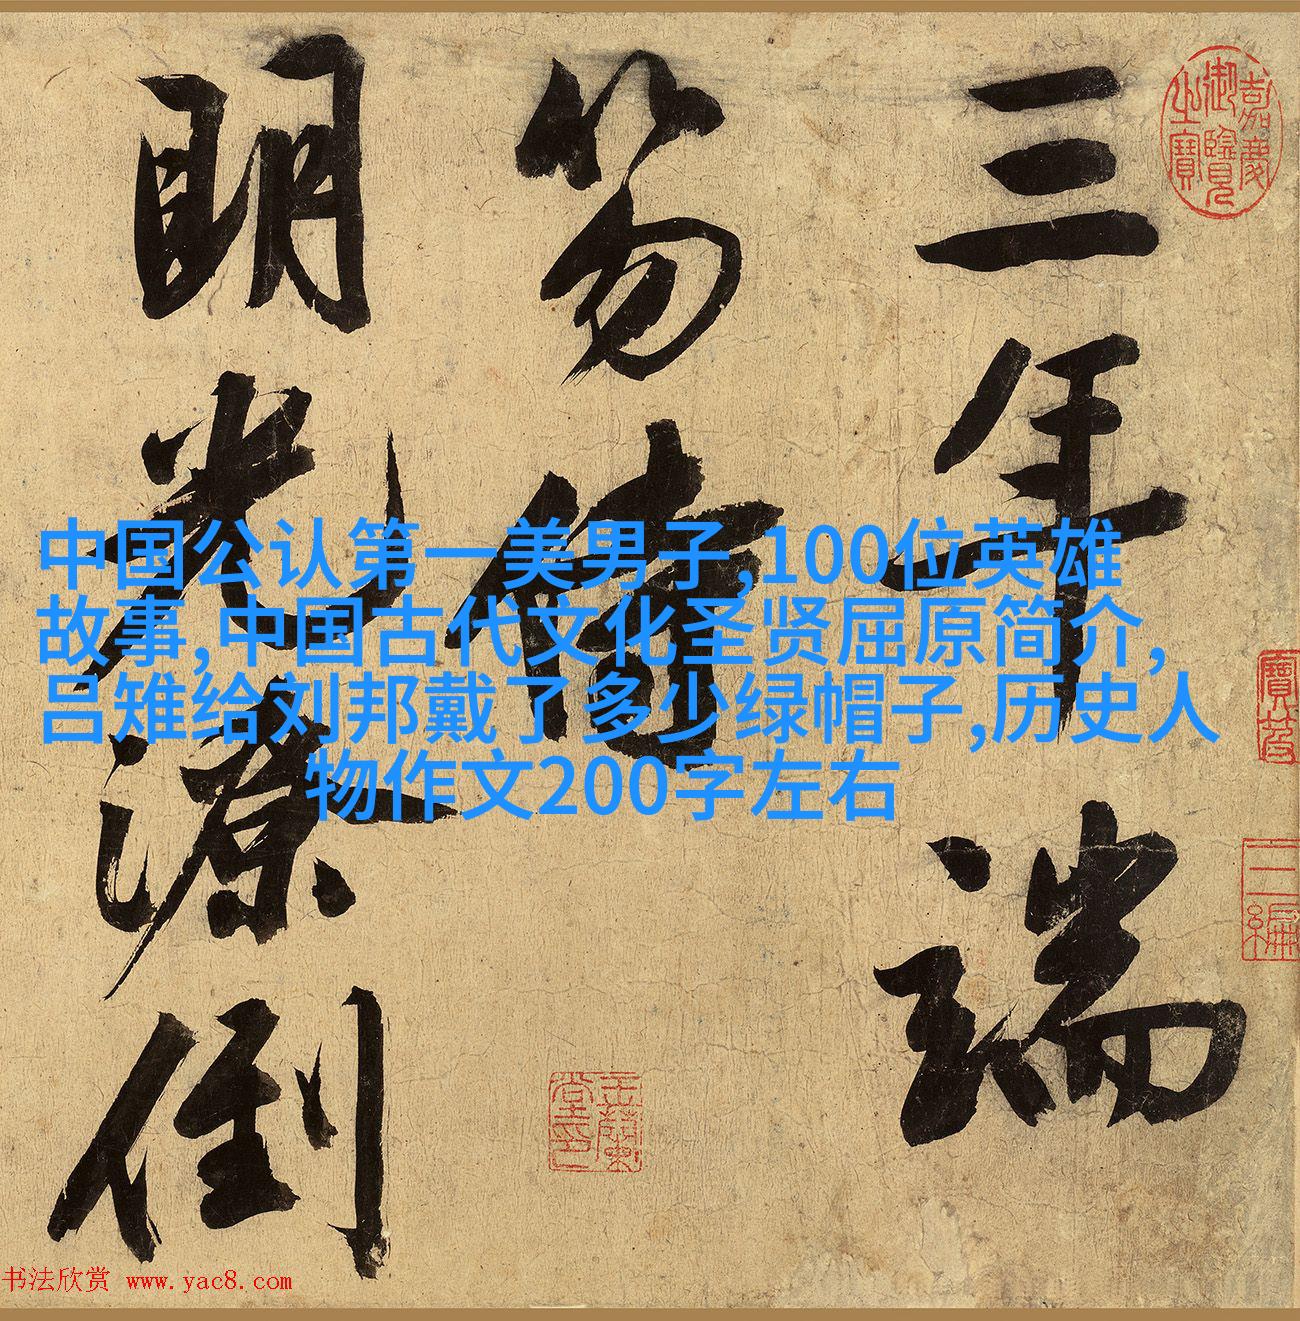 三年端
笏倚
明光潦倒
嘉慶御覽之寶
中国公认第一美男子,100位英雄
故事,中国古代文化圣贤屈原简介,
吕雉给刘邦戴了多少绿帽子,历史人
物作文200字左右
书法欣赏 www.yac8.com